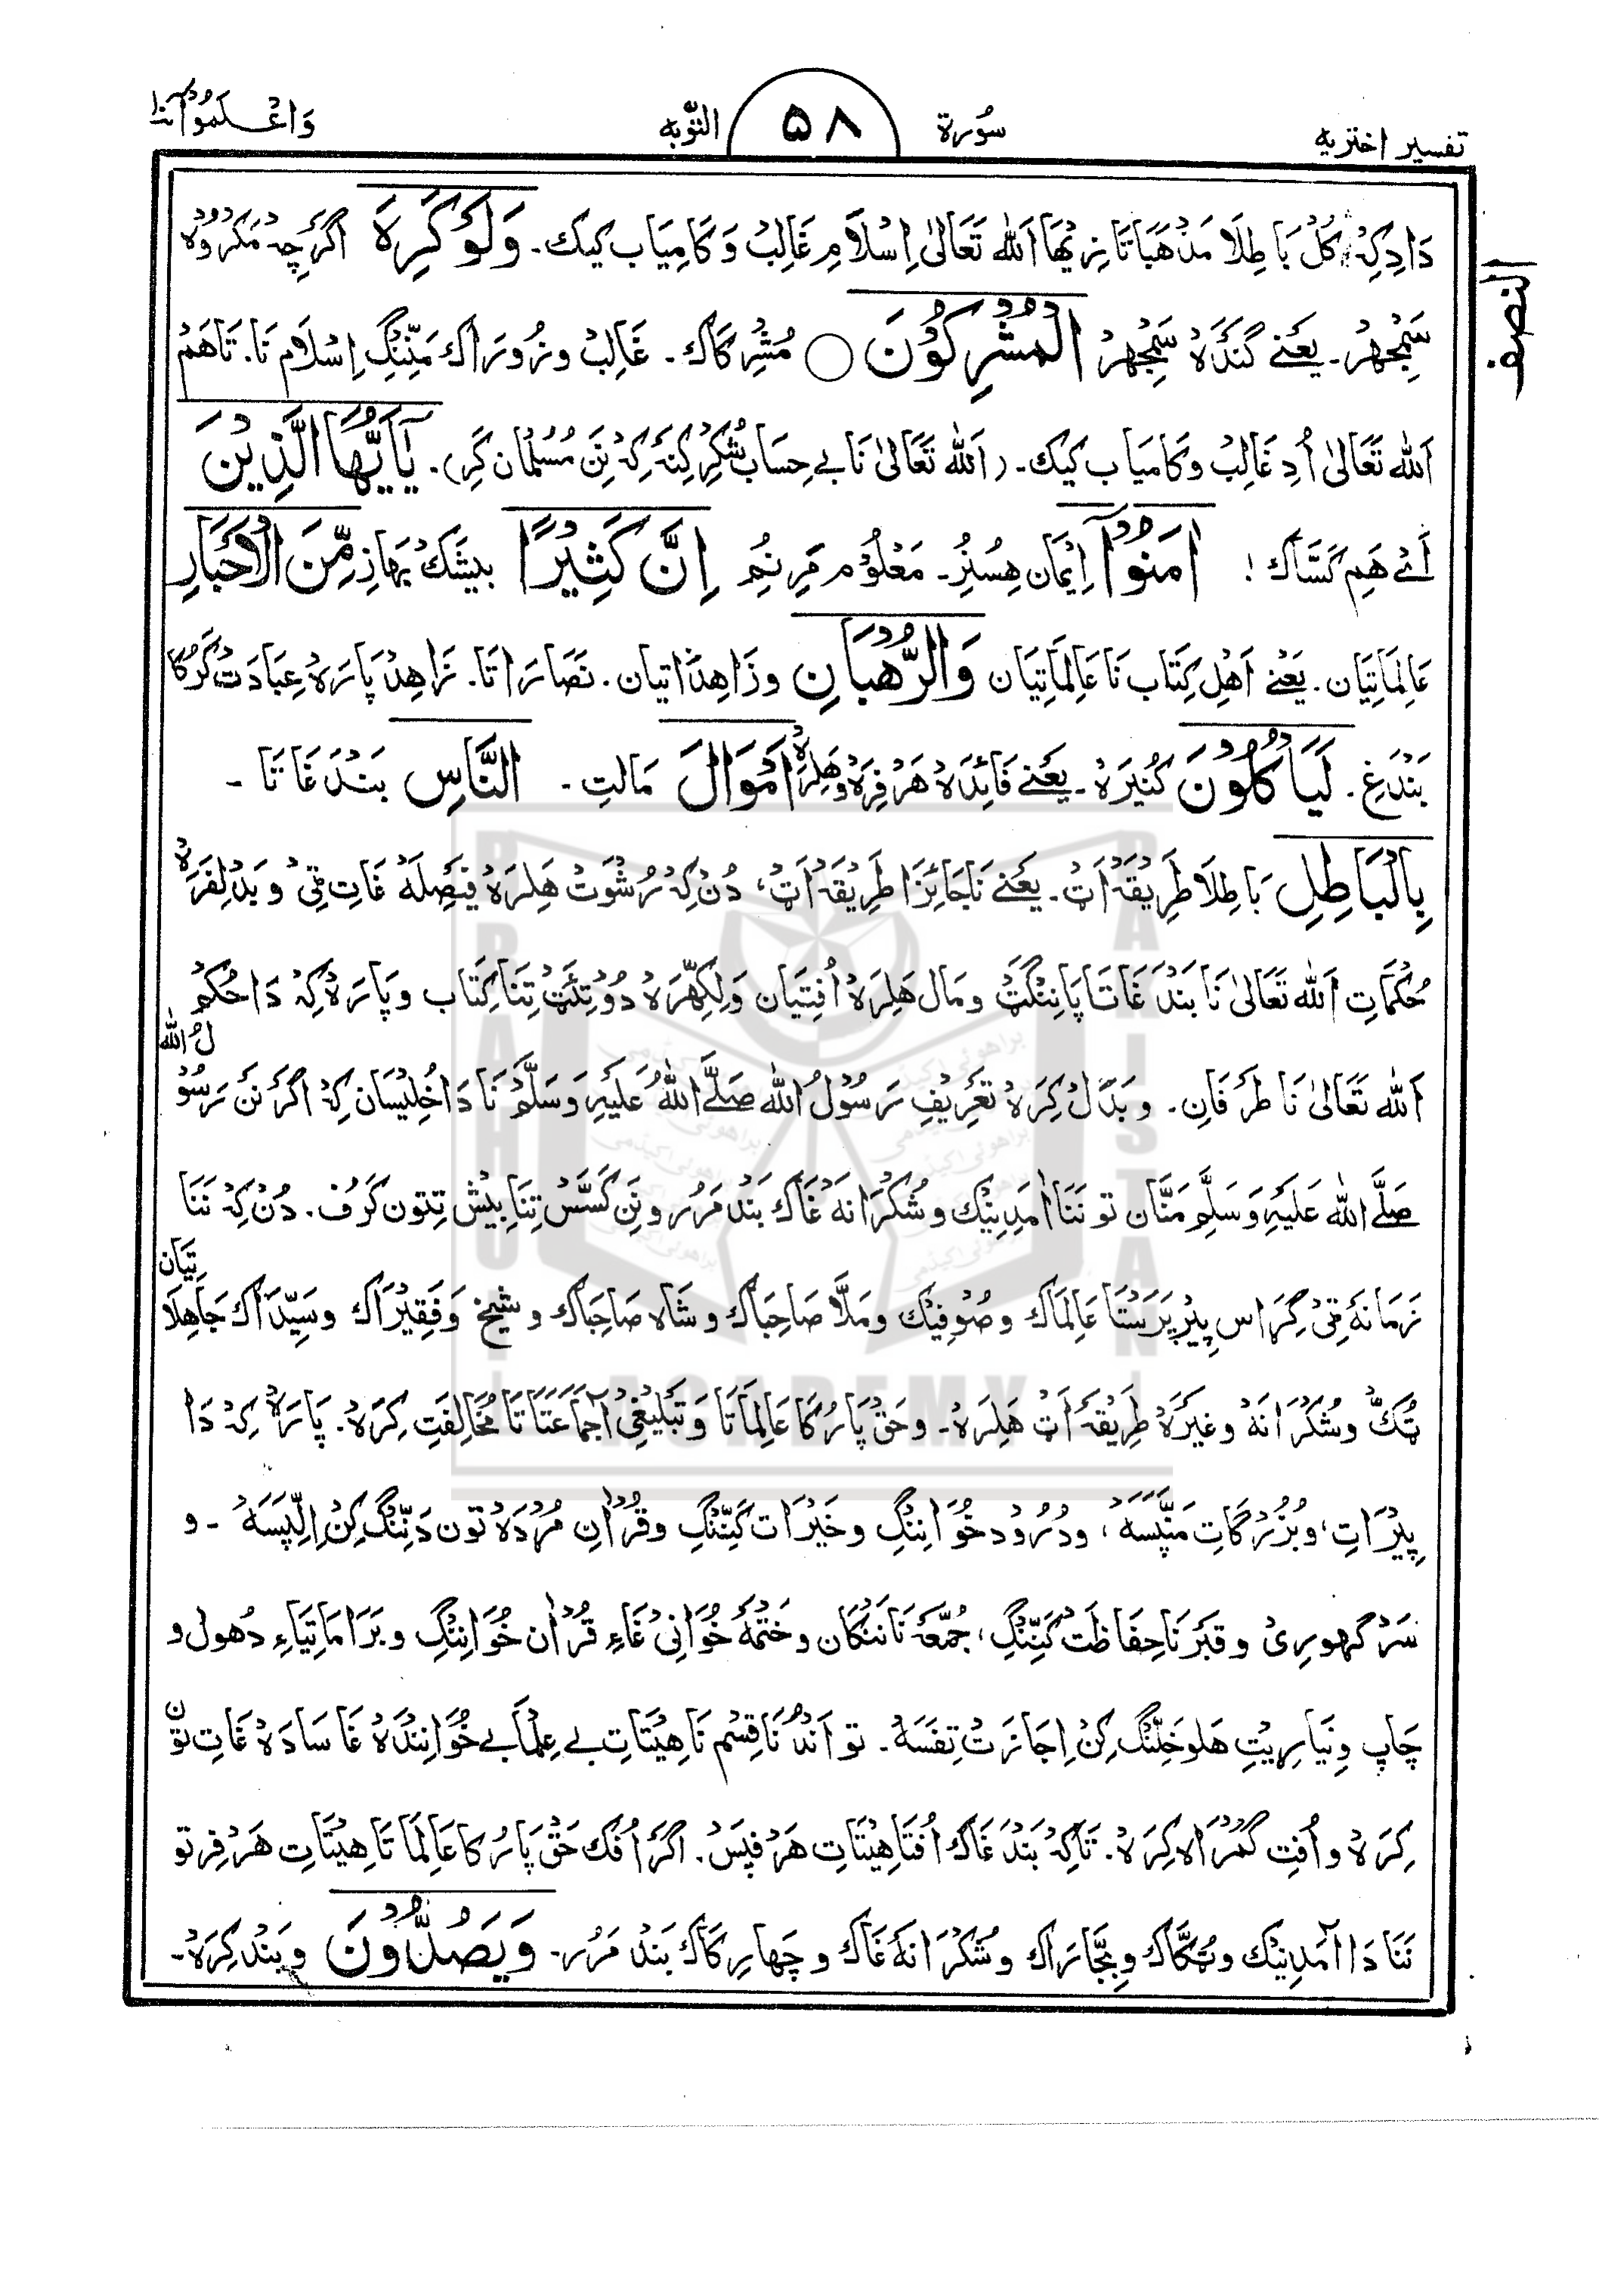 تفسیر اختریه
سُورة
۵۸
التَّوبه
وَاعْلَمُوْٓا
النصف
دَادِکِہْ کُلّ بَاطِلَا مَذْهَبَاتَا زِیْهَا اَللّٰه تَعَالیٰ اِسْلَامِ غَالِبْ وَکَامِیَاب کیک۔ وَلَوْ کَرِهَ اگرَچِہْ مَکْرُوْہْ
سَمْجِهرْ۔ یَعْنے گندَہْ سَمْجِهرْ الْمُشْرِکُوْنَ ○ مُشْرِکَاک۔ غَالِبْ وزُوْرَاک مَنِّنْگِ اِسْلَامِ نَا۔ تَاهَمْ
اَللّٰه تَعَالیٰ اُدِ غَالِبْ وَکَامیَاب کیک۔ (اَللّٰه تَعَالیٰ نَا بے حِسَاب شُکُرْ کِنَہ کِہْ نَن مُسُلْمان کَرِ)۔ یٰٓاَیُّهَا الَّذِیْنَ
اَئے هَمِ کَسَّاک! اٰمَنُوْٓا اِیْمَان هِسُنُرْ۔ مَعْلُوْم مَرِ نُمِ اِنَّ کَثِیْرًا بیشَکْ بَهَاز مِّنَ الْاَحْبَارِ
عَالِمَاتِیَان۔ یَعْنے اَهْلِ کِتَاب نَا عَالِمَاتِیَان وَالرُّهْبَانِ وزَاهِدَاتِیان۔ نَصَارَاتَا۔ زَاهِدْ پَارَہْ عِبَادَتْ کَرُکَا
بَنْدَغِ۔ لَیَاْکُلُوْنَ کُنِیرَہْ۔ یَعْنے فَائِدَہْ هَرْفِرَہْ وهَلِرَہْ اَمْوَالَ مَالتِ۔ النَّاسِ بَنْدَغَاتَا۔
بِالْبَاطِلِ بَاطِلَا طَرِیْقَہْ اَٹْ۔ یَعْنے نَاجَائِزَا طَرِیْقَہْ اَٹْ، دُنْ کِہْ رُشْوَتْ هَلِرَہْ فَیْصِلَہْ غَاتِ ٹِیْ وبَدَلِفِرَہْ
حُکْمَاتِ اَللّٰه تَعَالیٰ نَا بَنْدَغَاتَا پَاننْگَٹْ ومَال هَلِرَہْ اُفتِیَان وَلِکِهّرَہْ دُوْتِتَٹْ تِنَا کِتَاب وپَارَہْ کِہْ دَا حُکمْ
اَللّٰه تَعَالیٰ نَا طَرَفَانِ۔ وبَدَلْ کِرَہْ تَعْرِیْفِ رَسُوْلُ اللّٰه صَلَّے اللّٰهُ عَلَیْهِ وَسَلَّمْ نَا دَاخُلِیْسَان کِہْ اگرَ نَنْ رَسُوْلُ اللّٰه
صَلَّے اللّٰه عَلَیْهِ وَسَلَّمِ مَنَّان تو نَنَا اٰمَدِنِیْک وشُکْرَانَہْ غَاک بَنْد مَرُر ونَنِ کَسَّسْ تِنَا بِیْش تِتون کَرُف۔ دُنْ کِہْ نَنَا
زَمَانَہ ٹِیْ کِرَاس پِیْرپَرَسْتَا عَالِمَاک وصُوْفِیْک ومَلَّا صَاحِبَاک وشَاہ صَاحِبَاک وشَیخ وَفَقِیْرَاک وسَیِّدَاک جَاهِلَاتِیَان
ٹُکّ وشُکْرَانَہْ وغیْرَہْ طَرِیْقَہْ اَٹْ هَلِرَہْ۔ وحَقْ پَارُکَا عَالِمَاتَا وَتَبْلِیْغِیْ اٰجَمَاعَتَاتَا مُخَالِفَتِ کِرَہْ۔ پَارَہْ کِہْ دَا
پِیْرَاتِ، وبُزُرْگَاتِ مَنِّپَسَہْ، ودُرُوْد خُوَانِنْگِ وخَیْرَات کَنِّنْگِ وقُرْاٰن مُرْدَہْ تون دَنِّنْگ کِنْ اِلِّپَسَہْ۔ و
سَرْگهورِیْ وقَبْرنَا حِفَاظَتْ کَنِّنْگِ، جُمَّعَہْ نَا نَنْکَان وخَتْمَہ خُوَانِیْ غَاءِ قُرْاٰن خُوَانِنْگِ وبَرَامَاتِیَاءِ دُهول و
چَاپ ونِیَارِیْتِ هَلوخَلِنْگ کِنْ اِجَازَتْ تِفَسَہْ۔ تو اَنْدُنَا قِسْم نَا هِیْتَاتِ بے عِلْمَا بے خُوَانِنْدَہْ غَا سَادَہْ غَاتِ تُوْن
کِرَہْ واُفتِ گُمْرَاہ کِرَہْ۔ تَاکِہْ بَنْدَغَاک اُفتَا هِیْتَاتِ هَرْفِپَسْ۔ اگرَ اُفک حَقْ پَارُکَا عَالِمَاتَا هِیْتَاتِ هَرْفِر تو
نَنَا دَا اٰمَدِنِیْک وٹُکَّاک وبِجَّارَاک وشُکْرَانَہ غَاک وچَهارِکَاک بَنْد مَرُر۔ وَیَصُدُّوْنَ وبَنْد کِرَہْ۔